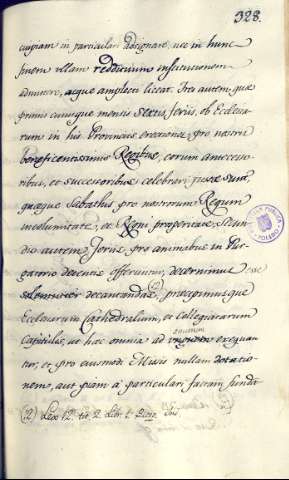 328.
cuipiam in particulari assignare, nec in hunc
finem ullam reddituum institutionem
admittere, aeque amplecti liceat. Tres autem, quae
primis cuiusque mensis sextis feriis, ob Eccleia-
rum in his Provinciis erectione, pro nostris
beneficentissimis Regibus, eorum antecesso-
ribus, et successoribus celebrari jussae sunt,
quaeque Sabathis pro nostrorum Regum
incolumitate, et Regni prosperitate, Secun-
dis autem feriis, pro animabus in Pur-
gatorio detentis offeruntur, decernimus esse
solemniter decantandas, (12) praecipimusque
Ecclesiarum Cathedralium, et Collegiatarum
Capitulis, ut haec omnia ad unguem exequan-
tur, et pro ejusmodi Missis nullam dotatio-
nem, aut etiam à particulari factam fundit
(12) Lex 12. tit. 2. Libr. 1.